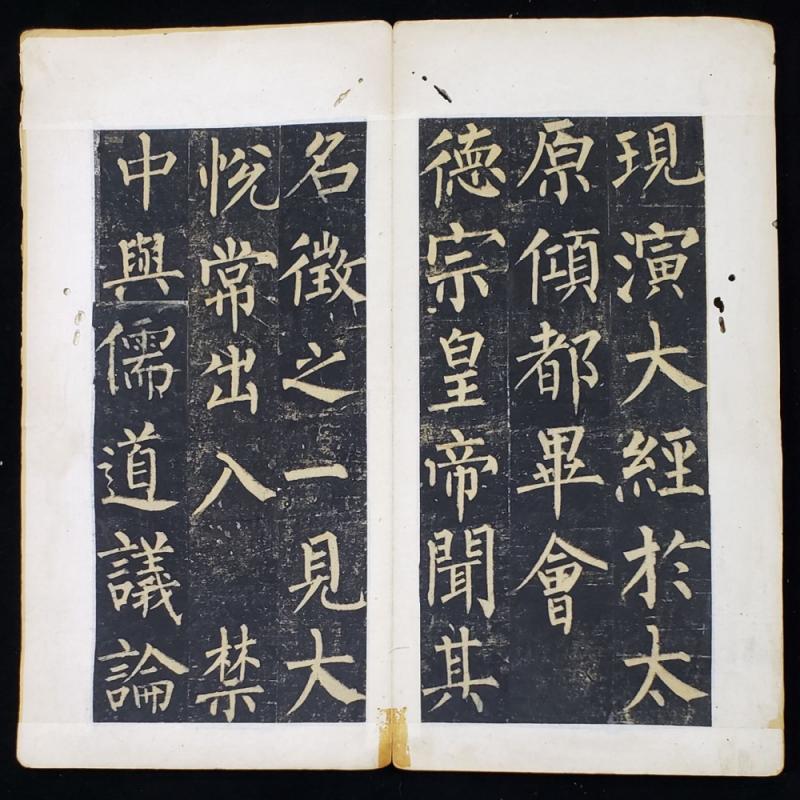 現演大經於太
原傾都畢會
德宗皇帝聞其
名徵之一見大
悅常出入 禁
中與儒道議論